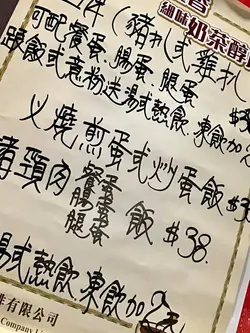 細味奶茶
件（豬扒或雞扒
可配餐蛋、腸蛋、腿蛋
跟飯或意粉送湯或熱飲、凍飲加
义燒煎蛋或炒蛋飯 $
豬頸肉餐蛋 腸蛋 腿蛋 飯 $38.
湯或熱飲凍飲加
有限公司
Company Li